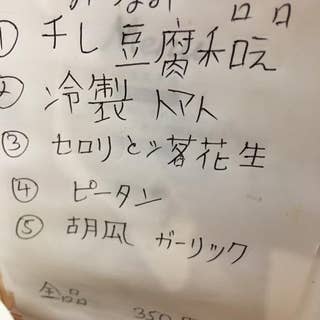 ① 干し豆腐和え
② 冷製トマト
③ セロリと落花生
④ ピータン
⑤ 胡瓜 ガーリック
全品 350